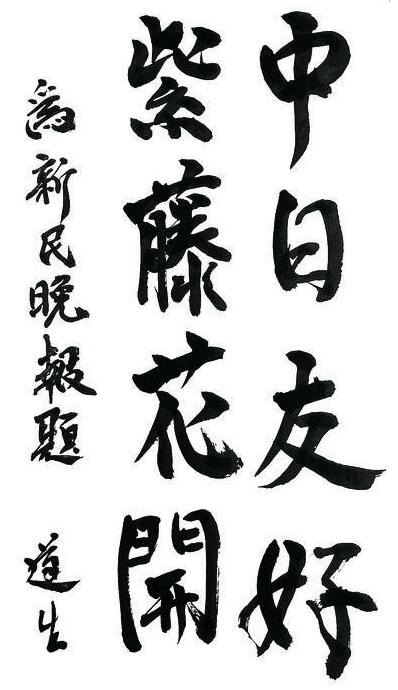 中日友好
紫藤花開
為新民晚報題
道生